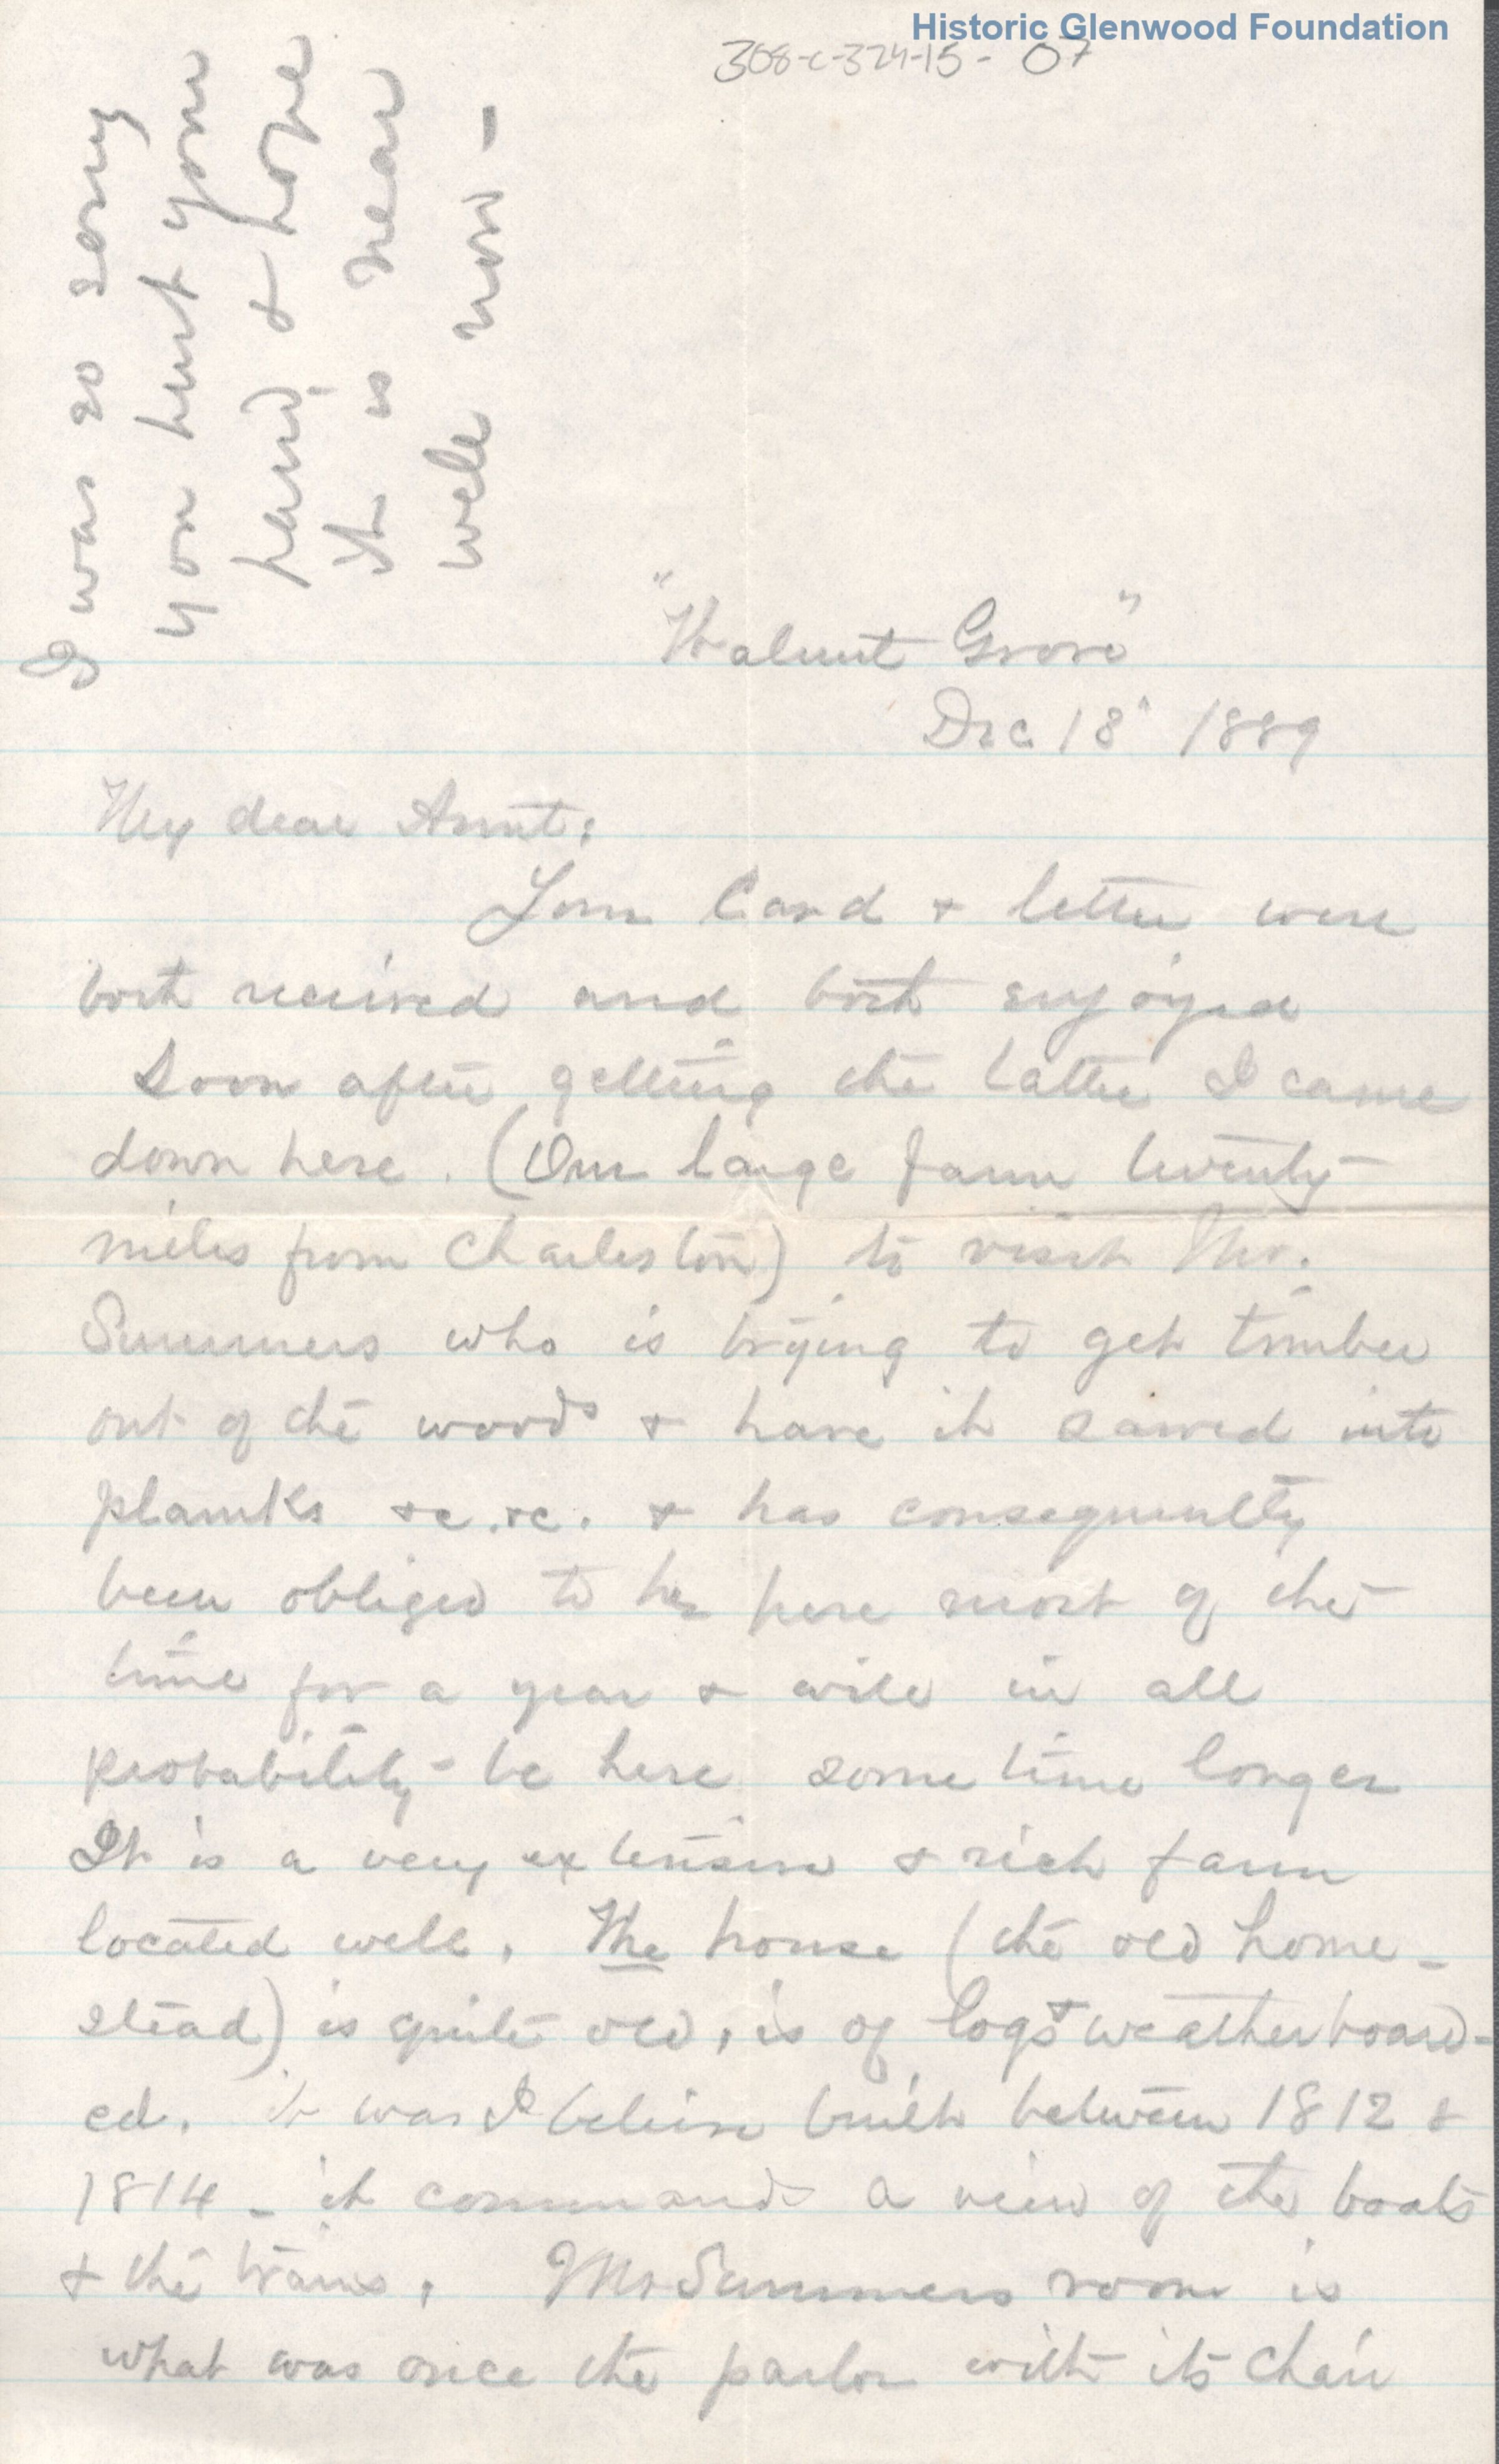 Historic Glenwood Foundation
308-c-324-15-07
I was so sorry
you hurt your
hand & hope
it is near
well now -
"Walnut Grove"
Dec 18" 1889
My dear Aunt:
Your Card & letter were
both received and both enjoyed
Soon after getting the latter I came
down here. (Our large farm twenty
miles from Charleston) to visit Mr.
Summers who is trying to get timber
out of the woods & have it sawed into
planks &c. &c. & has consequently
been obliged to be here most of the
time for a year & will in all
probability - be here some time longer
It is a very extensive & rich farm
located well. The house (the old home-
stead) is quite old, is of logs & weatherboard-
ed. it was I believe built between 1812 &
1814 - it commands a view of the boats
& the trains. Mr Summers room is
what was once the parlor with its chair